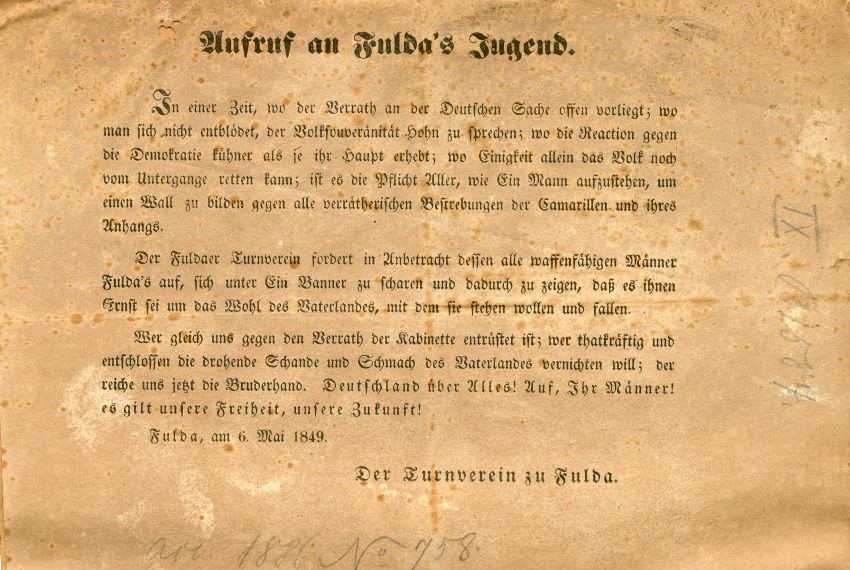 Aufruf an Fulda's Jugend.
In einer Zeit, wo der Verrath an der Deutschen Sache offen vorliegt; wo
man sich nicht entblödet, der Volksouveränität Hohn zu sprechen; wo die Reaction gegen
die Demokratie kühner als je ihr Haupt erhebt; wo Einigkeit allein das Volk noch
vom Untergange retten kann; ist es die Pflicht Aller, wie Ein Mann aufzustehen, um
einen Wall zu bilden gegen alle verrätherischen Bestrebungen der Camarillen und ihres
Anhangs.
Der Fuldaer Turnverein fordert in Anbetracht dessen alle waffenfähigen Männer
Fulda's auf, sich unter Ein Banner zu scharen und dadurch zu zeigen, daß es ihnen
Ernst sei um das Wohl des Vaterlandes, mit dem sie stehen wollen und fallen.
Wer gleich uns gegen den Verrath der Kabinette entrüstet ist; wer thatkräftig und
entschlossen die drohende Schande und Schmach des Vaterlandes vernichten will; der
reiche uns jetzt die Bruderhand. Deutschland über Alles! Auf, Ihr Männer!
es gilt unsere Freiheit, unsere Zukunft!
Fulda, am 6. Mai 1849.
Der Turnverein zu Fulda.
acc. 1886. No 758.
IX